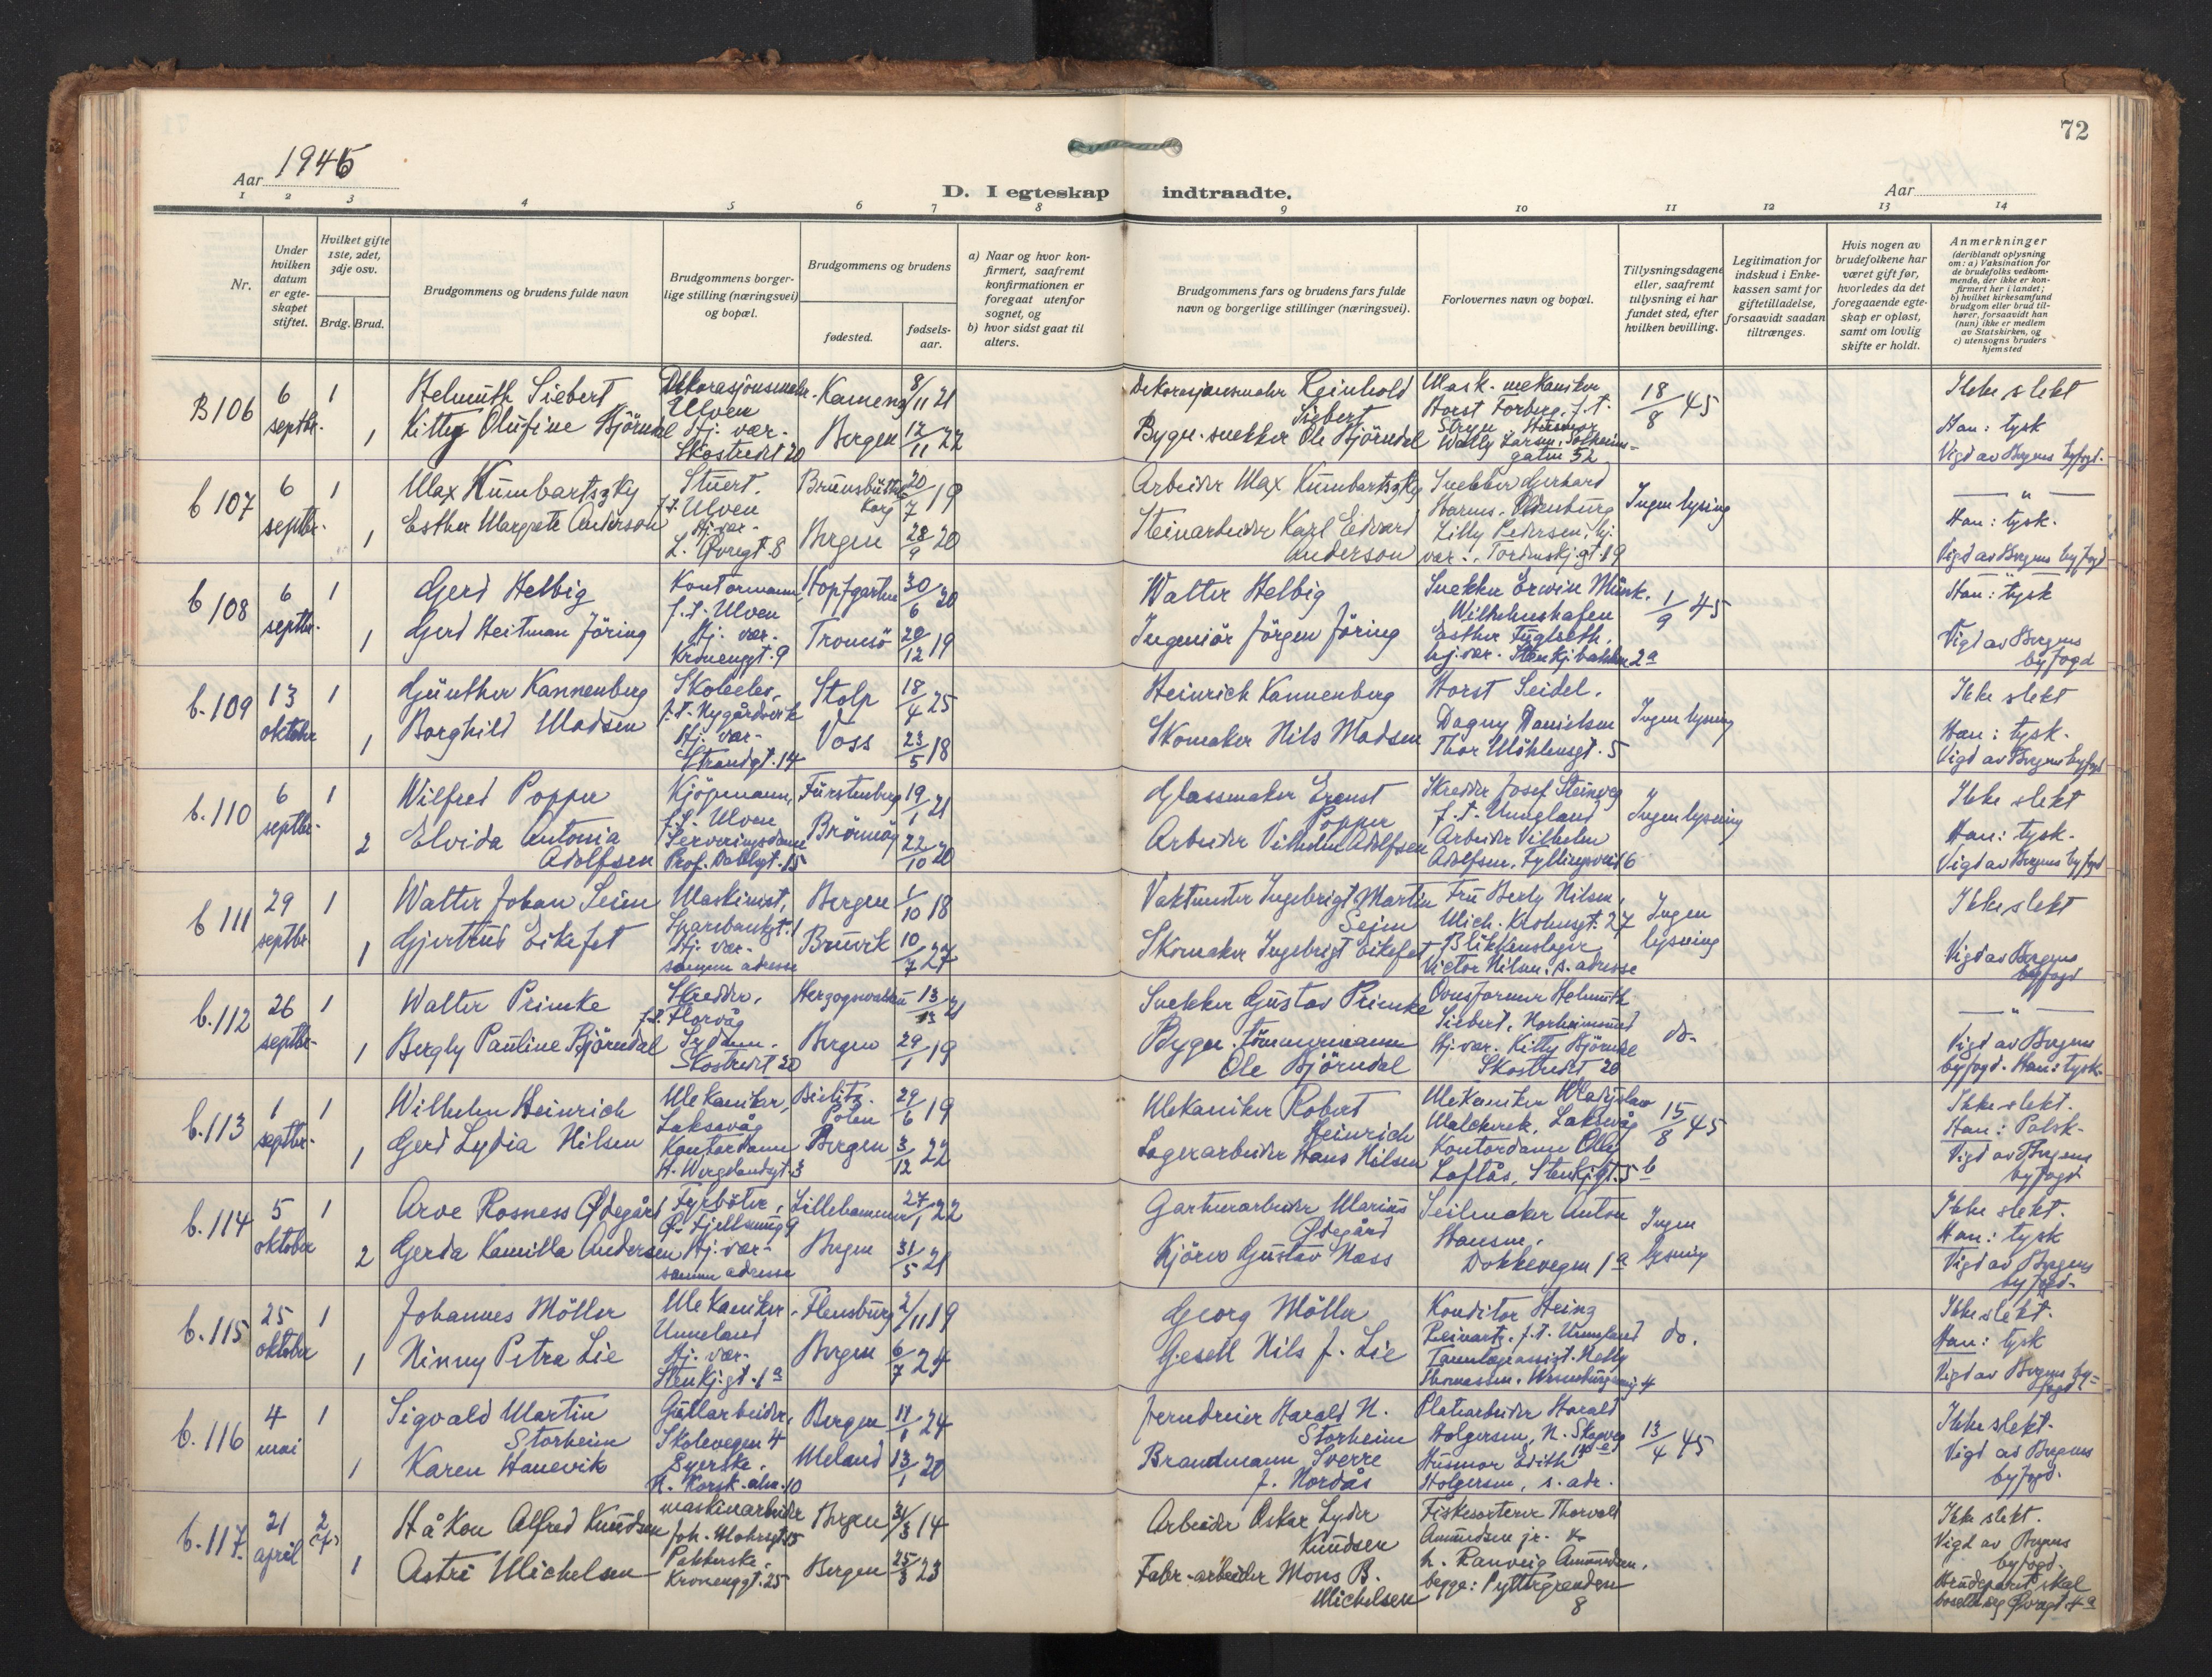 72
Aar 1945
D. I egteskap indtraadte.
Aar
1 2 3 4 5 6 7 8 9 10 11 12 13 14
Nr.
Under hvilken datum er egteskapet stiftet.
Hvilket gifte 1ste, 2det, 3dje osv.
Brdg. Brud.
Brudgommens og brudens fulde navn
Brudgommens borgerlige stilling (næringsvei) og bopæl.
Brudgommens og brudens
fødested.
fødselsaar.
a) Naar og hvor konfirmert, saafremt konfirmationen er foregaat utenfor sognet, og
b) hvor sidst gaat til alters.
Brudgommens fars og brudens fars fulde navn og borgerlige stillinger (næringsvei).
Forlovernes navn og bopæl.
Tillysningsdagene eller, saafremt tillysning ei har fundet sted, efter hvilken bevilling.
Legitimation for indskud i Enkekassen samt for giftetilladelse, forsaavidt saadan tiltrænges.
Hvis nogen av brudefolkene har været gift før, hvorledes da det foregaaende egteskap er opløst, samt om lovlig skifte er holdt.
Anmerkninger (deriblandt oplysning om: a) Vaksination for de brudefolks vedkommende, der ikke er konfirmert her i landet; b) hvilket kirkesamfund brudgom eller brud tilhører, forsaavidt han (hun) ikke er medlem av Statskirken, og c) utensogns bruders hjemsted
B 106 6 septbr. 1 1
Helmuth Siebert
Kitty Olufine Bjørndal
Dekorasjonsmaler
Ulven
Hj. vær.
Skostredet 20
Kamenz 8/11 21
Bergen 12/11 22
Dekorasjonsmaler Reinhold Siebert
Bygn. snekker Ole Bjørndal
Mask. mekaniker
Horst Forberg, f.t.
Stryn Husmor
Wally Larsen, Solheimsgaten 52
18/8 45
Ikke slekt
Han: tysk
Vigd av Bergens byfogd.
b 107 6 septbr. 1 1
Max Kumbartszky
Esther Margrete Anderson
Stuert.
f.t. Ulven
Hj. vær.
L. Øvregt. 8
Brunsbüttelkoog 20/7 19
Bergen 28/9 20
Arbeider Max Kumbartszky
Steinarbeider Karl Edvard Anderson
Snekker Gerhard
Harms, Oldenburg
Lilly Pedersen, hj.
vær., Tordenskj.gt. 19
Ingen lysing
— " —
Han: tysk.
Vigd av Bergens byfogd
b 108 6 septbr. 1 1
Gerd Helbig
Gerd Heitman Jöring
Kontormann
f.t. Ulven
Hj. vær.
Kroneng gt. 9
Hopfgarten 30/6 20
Tromsö 20/12 19
Walter Helbig
Ingeniör Jörgen Jöring
Snekker Erwin Münk,
Wilhelmshafen
Esther Fuglseth,
hj. vær. Stenkj.bakken 2a
1/9 45
Han: tysk
Vigd av Bergens byfogd
b. 109 13 oktober 1 1
Günther Kannenberg
Borghild Madsen
Skoleelev,
f.t. Nygårdsvik
Hj. vær.
Strandgt. 14
Stolp 18/4 25
Voss 23/5 18
Heinrich Kannenberg
Skomaker Nils Madsen
Horst Seidel.
Dagny Danielsen
Thor Möhlensgt. 5
Ingen lysning
Ikke slekt
Han: tysk.
Vigd av Bergens byfogd
b. 110 6 septbr. 1 2
Wilfred Popper
Elvida Antonia Adolfsen
Kjöpmann,
f.t. Ulven
Serveringsdame
Prof. Dahlsgt. 15
Fürstenberg 19/1 21
Brönnöy 22/10 20
Glassmaker Ernst Popper
Arbeider Vilhelm Adolfsen
Skredder Josef Steinweg
f.t. Unneland
Arbeider Vilhelm
Adolfsen, Fyllingsveit 6
Ingen lysning
Ikke slekt
Han: tysk.
Vigd av Bergens byfogd
b 111 29 septbr. 1 1
Walter Johan Seim
Gjertrud Eikefet
Maskinist,
Sparebankgt. 1
Hj. vær.
samme adresse
Bergen 1/10 18
Bruvik 10/7 27
Vaktmester Ingebrigt Martin Seim
Skomaker Ingebrigt Eikefet
Fru Berly Nilsen,
Mich. Krohnsgt. 27
Blikkenslager
Victor Nilsen, s. adresse
Ingen lysning
Ikke slekt
Vigd av Bergens byfogd
b. 112 26 septbr. 1 1
Walter Primke
Bergly Pauline Bjørndal
Skredder,
f.t. Florvåg
Sydame.
Skostredet 20
Herzogswaldau 13/ 21
Bergen 29/1 19
Snekker Gustav Primke
Bygn. tömmermann
Ole Bjørndal
Ovnsformer Helmuth
Siebert, Norheimsund
Hj. vær. Kitty Bjørndal
Skostredet 20
do.
— " —
Vigd av Bergens
byfogd. Han: tysk.
b. 113 1 septbr. 1 1
Wilhelm Heinrich
Gerd Lydia Nilsen
Mekaniker,
Laksevåg
Kontordame
H. Wergelandsgt. 3
Bielitz. Polen 29/6 19
Bergen 3/12 22
Mekaniker Robert Heinrich
Lagerarbeider Hans Nilsen
Mekaniker Wladyslaw
Laksevåg
Kontordame Elly
Loftås, Stenkj.gt. 5 b
15/8 45
Ikke slekt.
Han: Polsk.
Vigd av Bergens byfogd
b. 114 5 oktober 1 2
Arve Rosness Ødegård
Gerda Kamilla Andersen
Fyrböter,
Ø. Fjellsmug 9
Hj. vær.
samme adresse
Lillehammer 27/1 22
Bergen 31/5 21
Gartnerarbeider Marius Ødegård
Kjörer Gustav Næss
Seilmaker Anton
Hansen,
Dokkevegen 1a
Ingen lysning
Ikke slekt.
Han: tysk
Vigd av Bergens byfogd.
b. 115 25 oktober 1 1
Johannes Möller
Ninny Petra Lie
Mekaniker.
Unneland
Hj. vær.
Stenkj.gt. 1a
Flensburg 2/11 19
Bergen 6/7 24
Georg Möller
Gesell Nils J. Lie
Konditor Heinz
Reinartz, f.t. Unneland
Tannlegeassist. Nelly
Thomassen, 4
do.
Ikke slekt.
Han: tysk
Vigd av Bergens byfogd
b. 116 4 mai 1 1
Sigvald Martin Storheim
Karen Hanevik
Gullarbeider,
Skolevegen 4
Syerske.
N. Korsk.alm. 10
Bergen 11/1 24
Meland 13/1 20
Jerndreier Harald N. Storheim
Brandmann Sverre J. Nordås
Platearbeider Harald
Holgersen, N. Skogveg
Husmor Edith
Holgersen, s. adr.
13/4 45
Ikke slekt.
Vigd av Bergens byfogd.
b. 117. 21 april 2 1
Håkon Alfred Knudsen
Astri Michelsen
maskinarbeider
Joh. Mohrsgt. 15
Pakkerske.
Kroneng gt. 25
Bergen 31/3 14
Bergen 25/3 23
Arbeider Oskar Lyder Knudsen
Fabr.-arbeider Mons B. Michelsen
Fiskesorterer Thorvald
Amundsen jr. &
h. Ranveig Amundsen.
begge: Pyttergrenden 8
Ikke slekt.
Vigd av Bergens byfogd.
Brudeparet skal
bosette seg Øvregt. 4a